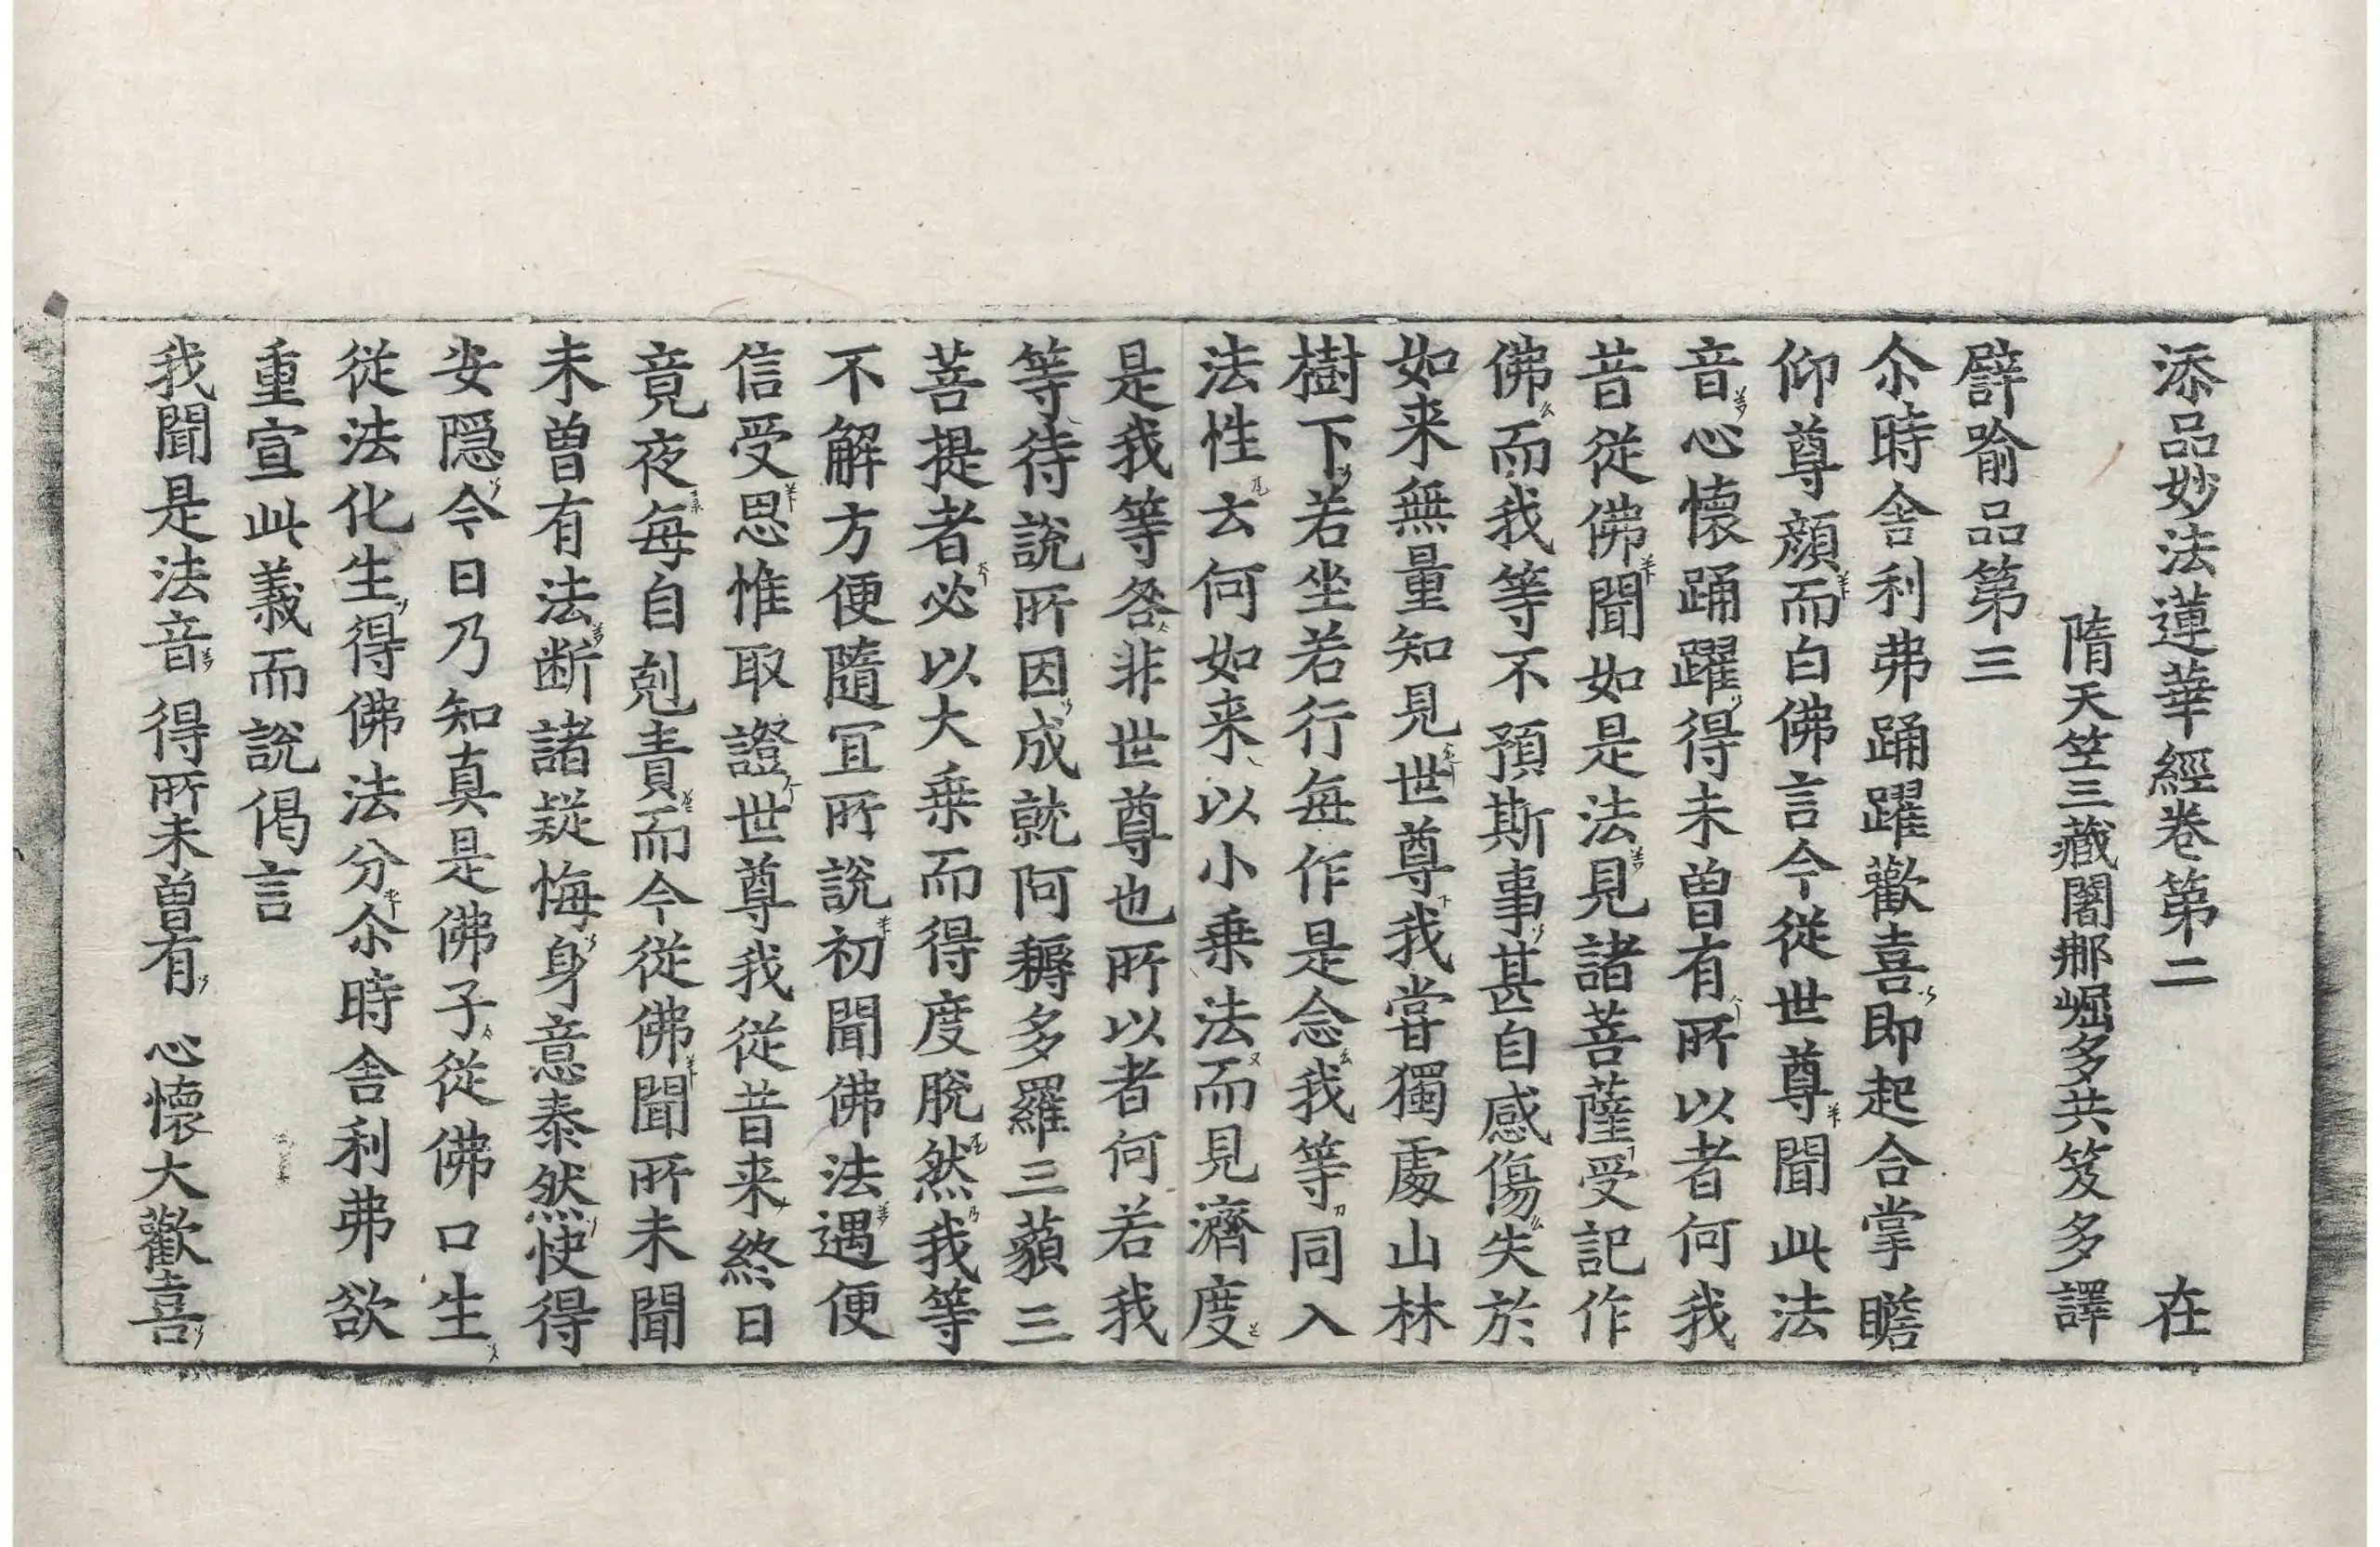 添品妙法蓮華經卷第二 在
隋天笠三藏闍那崛多共笈多譯
譬喻品第三
尒時舎利弗踊躍歡喜即起合掌瞻
仰尊顔而白佛言今從世尊聞此法
音心懷踊躍得未曽有所以者何我
昔從佛聞如是法見諸菩薩受記作
佛而我等不預斯事甚自感傷失於
如来無量知見世尊我甞獨處山林
樹下若坐若行每作是念我等同入
法性云何如来以小乗法而見濟度
是我等咎非世尊也所以者何若我
等待說所因成就阿耨多羅三藐三
菩提者必以大乗而得度脫然我等
不解方便隨冝所說初聞佛法遇便
信受思惟取證世尊我從昔来終日
竟夜每自剋責而今從佛聞所未聞
未曽有法断諸疑悔身意泰然快得
安隠今日乃知真是佛子從佛口生
從法化生得佛法分尒時舎利弗欲
重宣此義而說偈言
我聞是法音 得所未曽有 心懷大歡喜